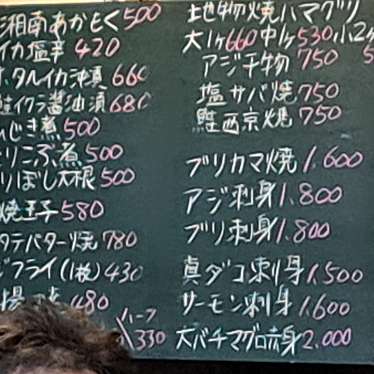 湘南あかもく500
イカ塩辛420
ホタルイカ沖漬660
鮭イクラ醤油漬680
ひじき煮500
切りこぶ煮500
切りぼし大根500
焼玉子580
ホタテバター焼780
アジフライ(1枚)430
480
ハーフ
330
地物焼ハマグリ
大1ヶ660中1ヶ530小2ヶ
アジ干物750
塩サバ焼750
鮭西京焼750
ブリカマ焼1.600
アジ刺身1.800
ブリ刺身1.800
真ダコ刺身1,500
サーモン刺身1,600
大バチマグロ赤身2.000